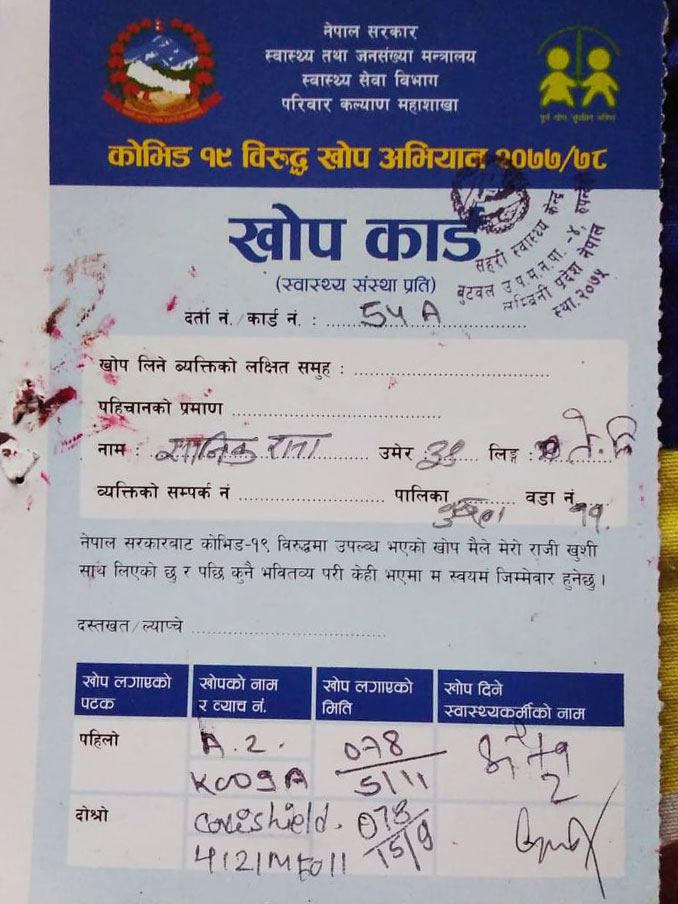 नेपाल सरकार
स्वास्थ्य तथा जनसंख्या मन्त्रालय
स्वास्थ्य सेवा विभाग
परिवार कल्याण महाशाखा
कोभिड १९ विरुद्ध खोप अभियान २०७७/७८
खोप कार्ड
(स्वास्थ्य संस्था प्रति)
सहरी स्वास्थ्य केन्द्र
बुटवल उ.प.म.न.पा. -४,
लुम्बिनी प्रदेश नेपाल
स्था.२०७५
दर्ता नं./कार्ड नं. : 54 A
खोप लिने व्यक्तिको लक्षित समुह :
पहिचानको प्रमाण
नाम : राना उमेर : लिङ्ग :
व्यक्तिको सम्पर्क नं पालिका वडा नं. ११
नेपाल सरकारवाट कोभिड-१९ विरुद्धमा उपल्ब्ध भएको खोप मैले मेरो राजी खुशी
साथ लिएको छु र पछि कुनै भवितव्य परी केही भएमा म स्वयमं जिम्मेवार हुनेछु ।
दस्तखत/ल्याप्चे
खोप लगाएको पटक
खोपको नाम र व्याच नं.
खोप लगाएको मिति
खोप दिने स्वास्थ्यकर्मीको नाम
पहिलो A.2. 078
K009A 5/11
दोश्रो covishield. 078
4121MF011 15/9